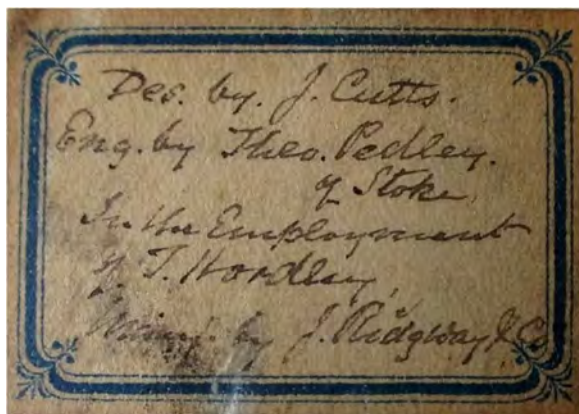 Des. by. J. Cutts.
Eng. by Theo. Pedley.
of Stoke,
In the Employment
of T. Hordley,
by J. Ridgway & Co